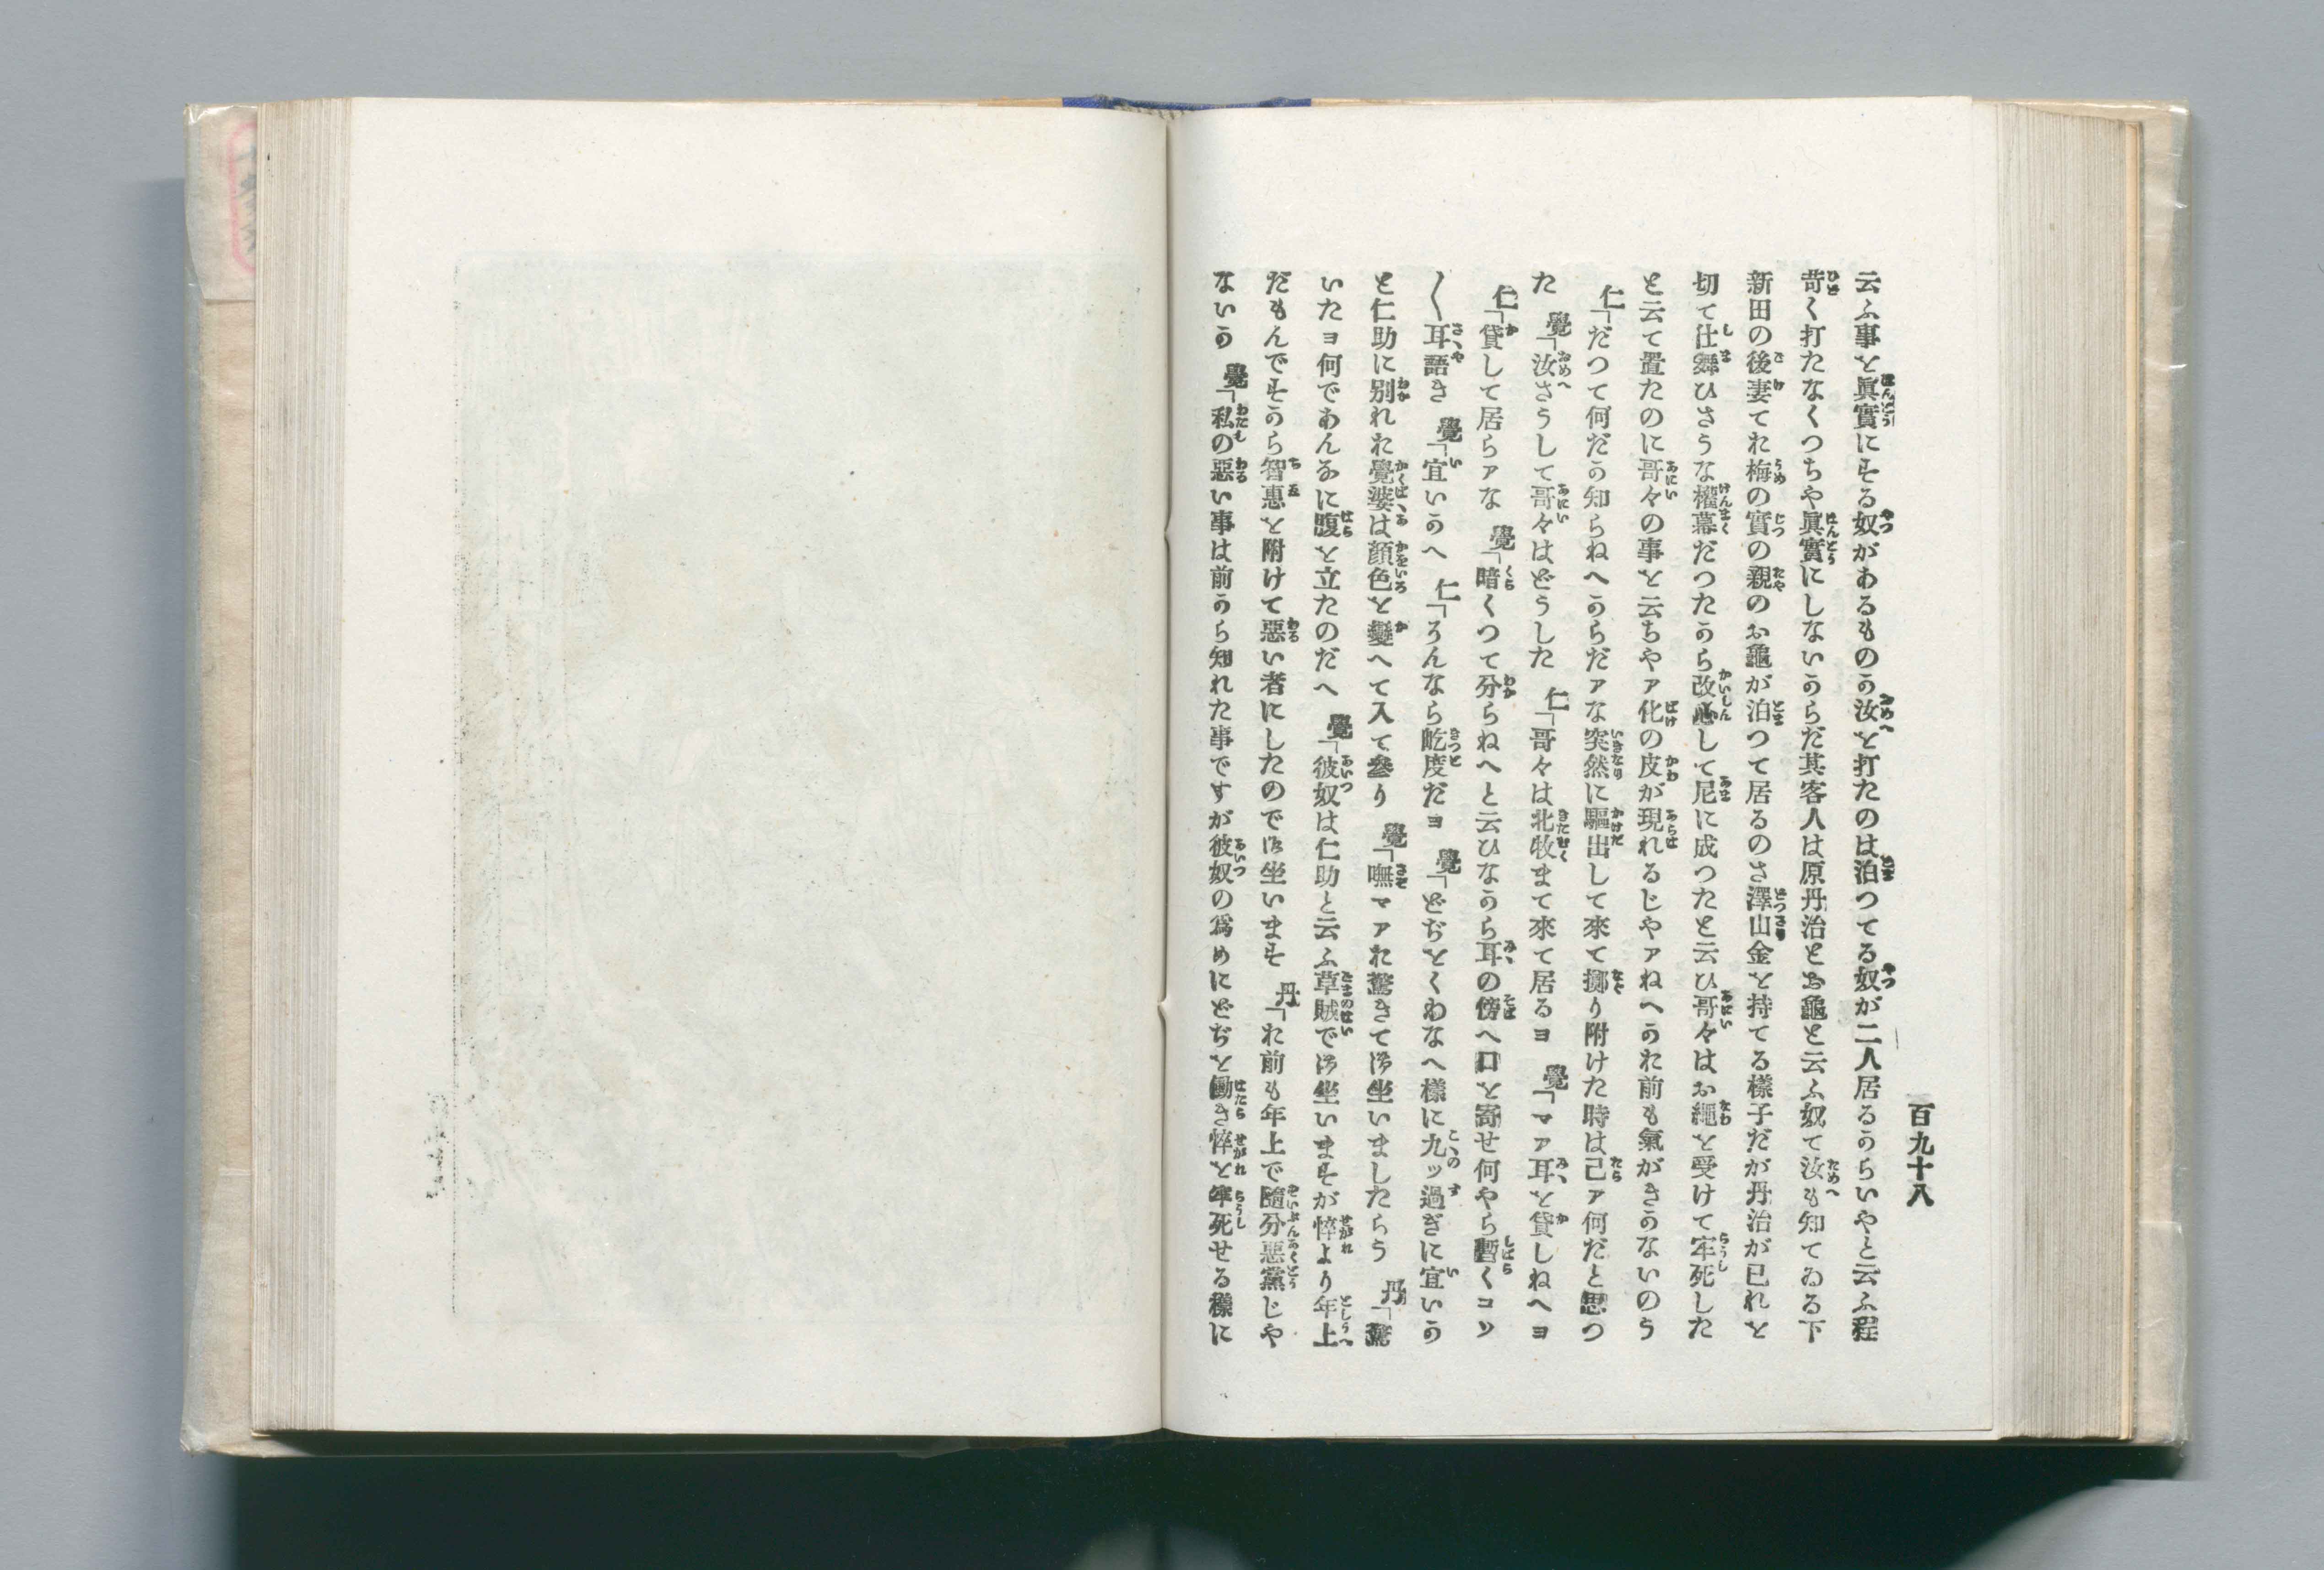 百九十八
云ふ事を眞實にする奴があるものか汝を打たのは泊つてる奴が二人居るからいやと云ふ程
苛く打たなくつちや眞實にしないからだ其客人は原丹治とお龜と云ふ奴で汝も知てゐる下
新田の後妻でお梅の實の親のお龜が泊つて居るのさ澤山金を持てる樣子だが丹治が已れを
切て仕舞ひさうな權幕だつたから改心して尼に成つたと云ひ哥々はお繩を受けて牢死した
と云て置たのに哥々の事を云ちやァ化の皮が現れるじやァねへかお前も氣がきかないのう
仁「だつて何だか知らねへからだァな突然に驅出して來て擲り附けた時は己ァ何だと思つ
た 覺「汝さうして哥々はどうした 仁「哥々は北牧まで來て居るヨ 覺「マァ耳を貸しねへヨ
仁「貸して居らァな 覺「暗くつて分らねへと云ひながら耳の傍へ口を寄せ何やら暫くコソ
〱耳語き 覺「宜いかへ 仁「そんなら屹度だヨ 覺「どぢをくわなへ樣に九ッ過ぎに宜いか
と仁助に別れお覺婆は顔色を變へて入て參り 覺「嘸マァお驚きで御坐いましたらう 丹「驚
いたヨ何であんなに腹を立たのだへ 覺「彼奴は仁助と云ふ草賊で御坐いますが悴より年上
だもんですから智惠を附けて惡い者にしたので御坐います 丹「お前も年上で隨分惡黨じや
ないか 覺「私の惡い事は前から知れた事ですが彼奴の爲めにどぢを働き悴を牢死せる樣に